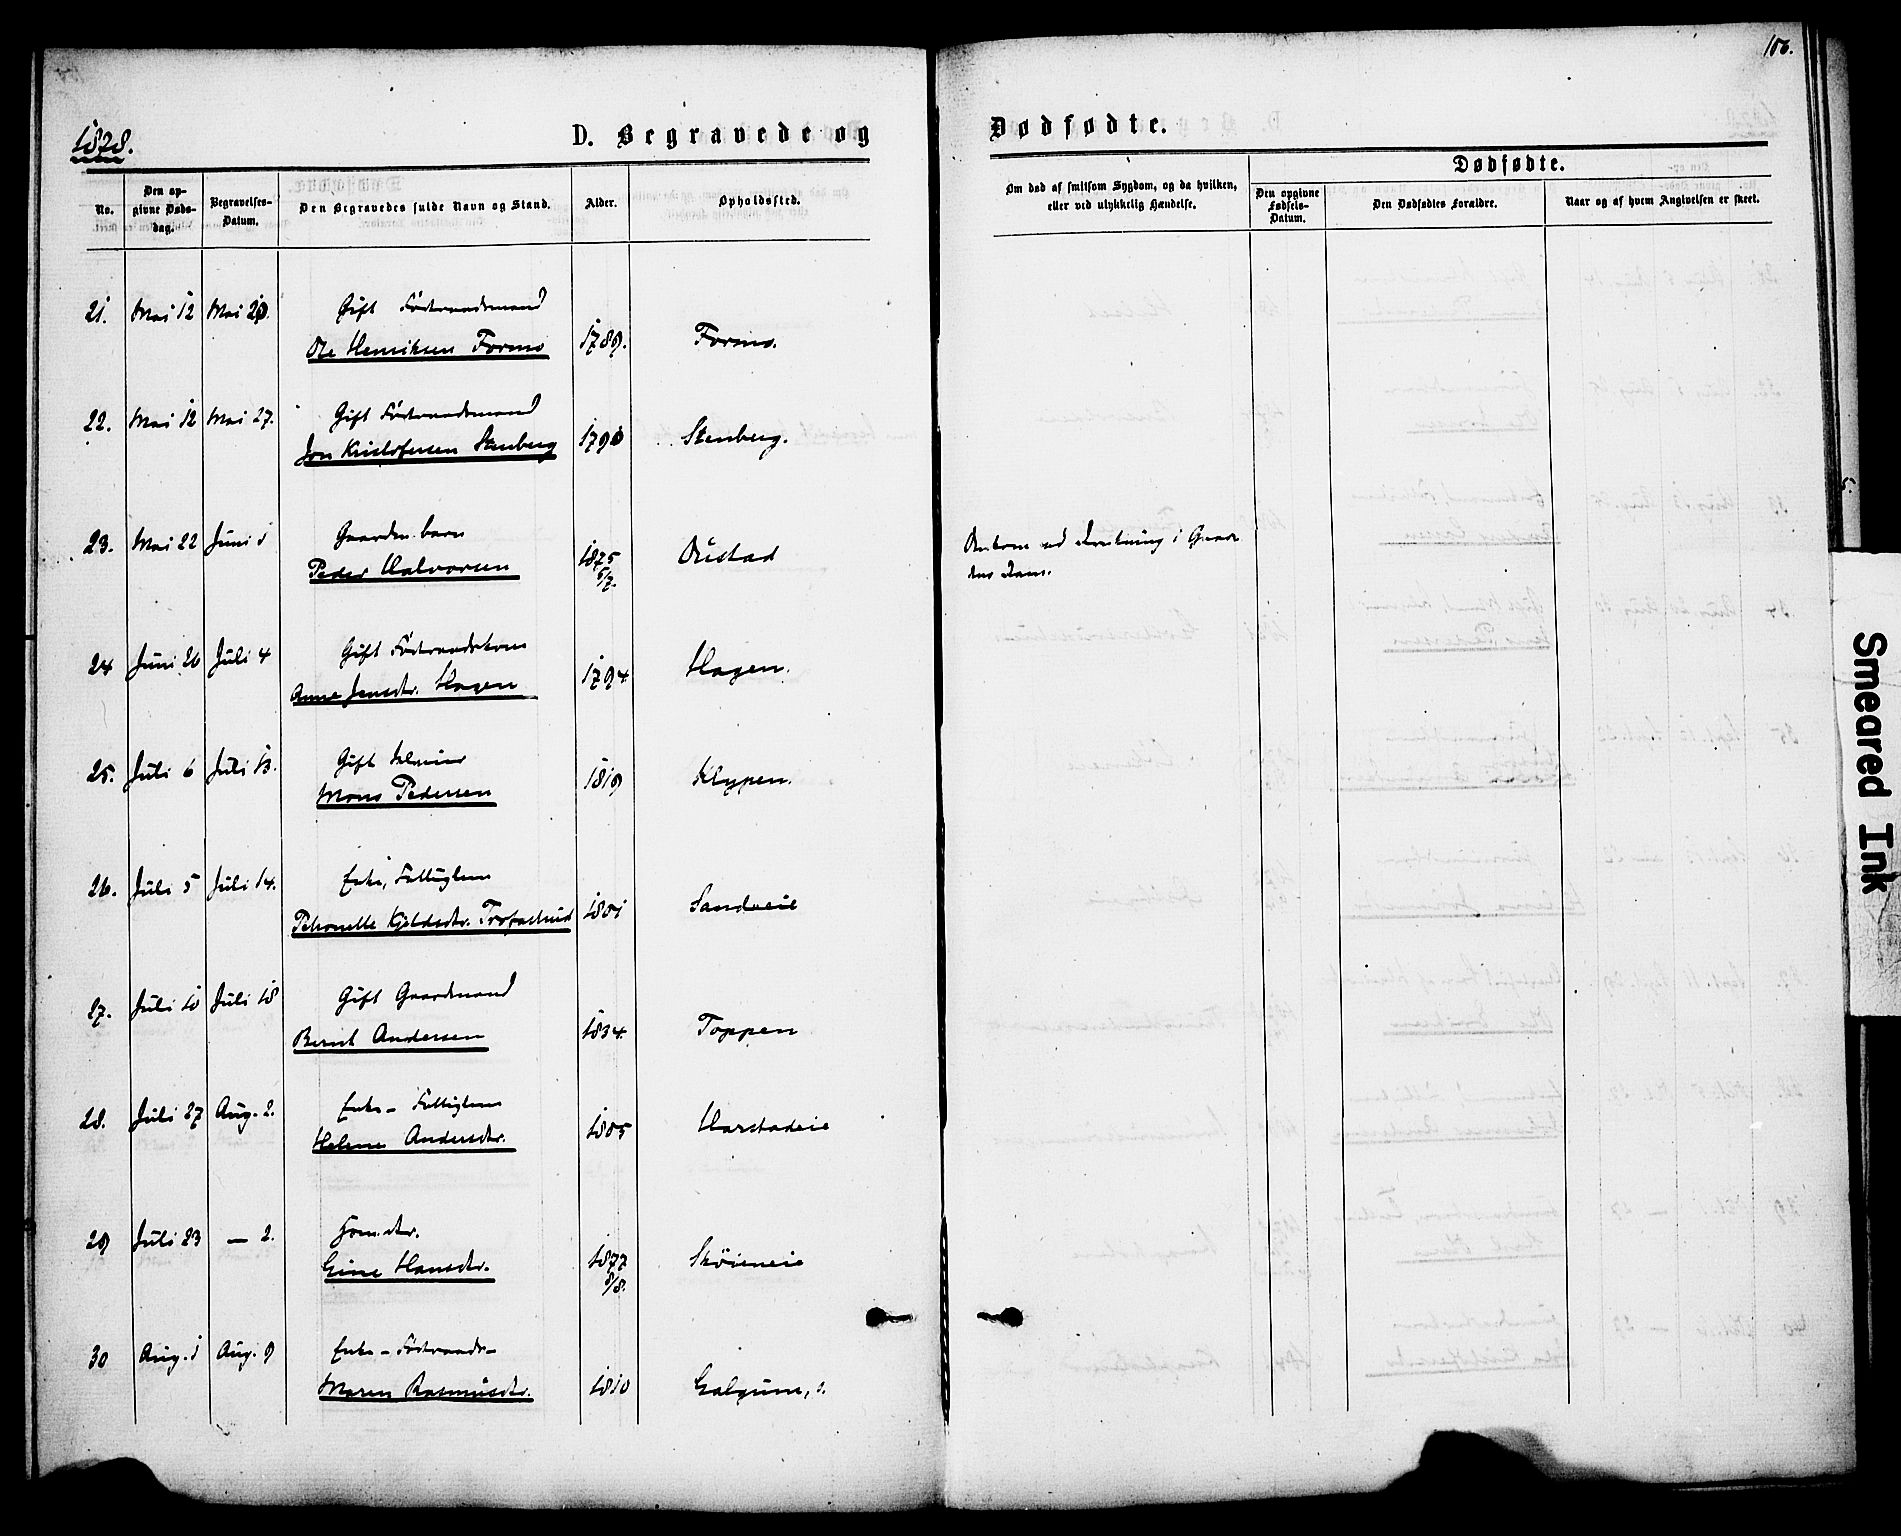 106.
1878.
D. Begravede og
Dødfødte.
No.
Den opgivne Døds-dag.
Begravelses-Datum.
Den Begravedes fulde Navn og Stand.
Alder.
Opholdssted.
Om død af smitsom Sygdom, og da hvilken, eller ved ulykkelig Hændelse.
Dødfødte.
Den opgivne Fødsels-Datum.
Den Dødfødtes Forældre.
Naar og af hvem Angivelsen er skeet.
21. Mai 12 Mai 20. Gift Føderaadsmand
Ole Henriksen Formo 1789. Formo.
22. Mai 12 Mai 27. Gift Føderaadsmand
Jon Kristofersen Stenberg 1790 Stenberg.
23. Mai 22 Juni 1 Gaardm.barn
Peder Halvorsen 1875 5/7. Ølstad
Omkom ved Drukning i Gaardens Dam.
24 Juni 26 Juli 4 Gift Føderaadskone
Anne Jensdtr. Hagen 1794 Hagen.
25. Juli 6 Juli 13. Gift
Mons Pedersen 1819 Klypen.
26. Juli 5 Juli 14. Enke, Fattiglem
Petronelle Kjeldsdtr. 1801 Sandveie
27. Juli 10 Juli 18 Gift Gaardmand
Bernt Andersen 1834. Toppen
28. Juli 27 Aug. 2. Enke – Fattiglem
Helene Andersdtr. 1805 Harstadeie
29 Juli 23 — 2.
Gine Hansdtr. 1877 8/8. Skøieneie
30 Aug. 1 Aug. 9 Enke – Føderaads–
Maren Rasmusdtr. 1810
Smeared Ink